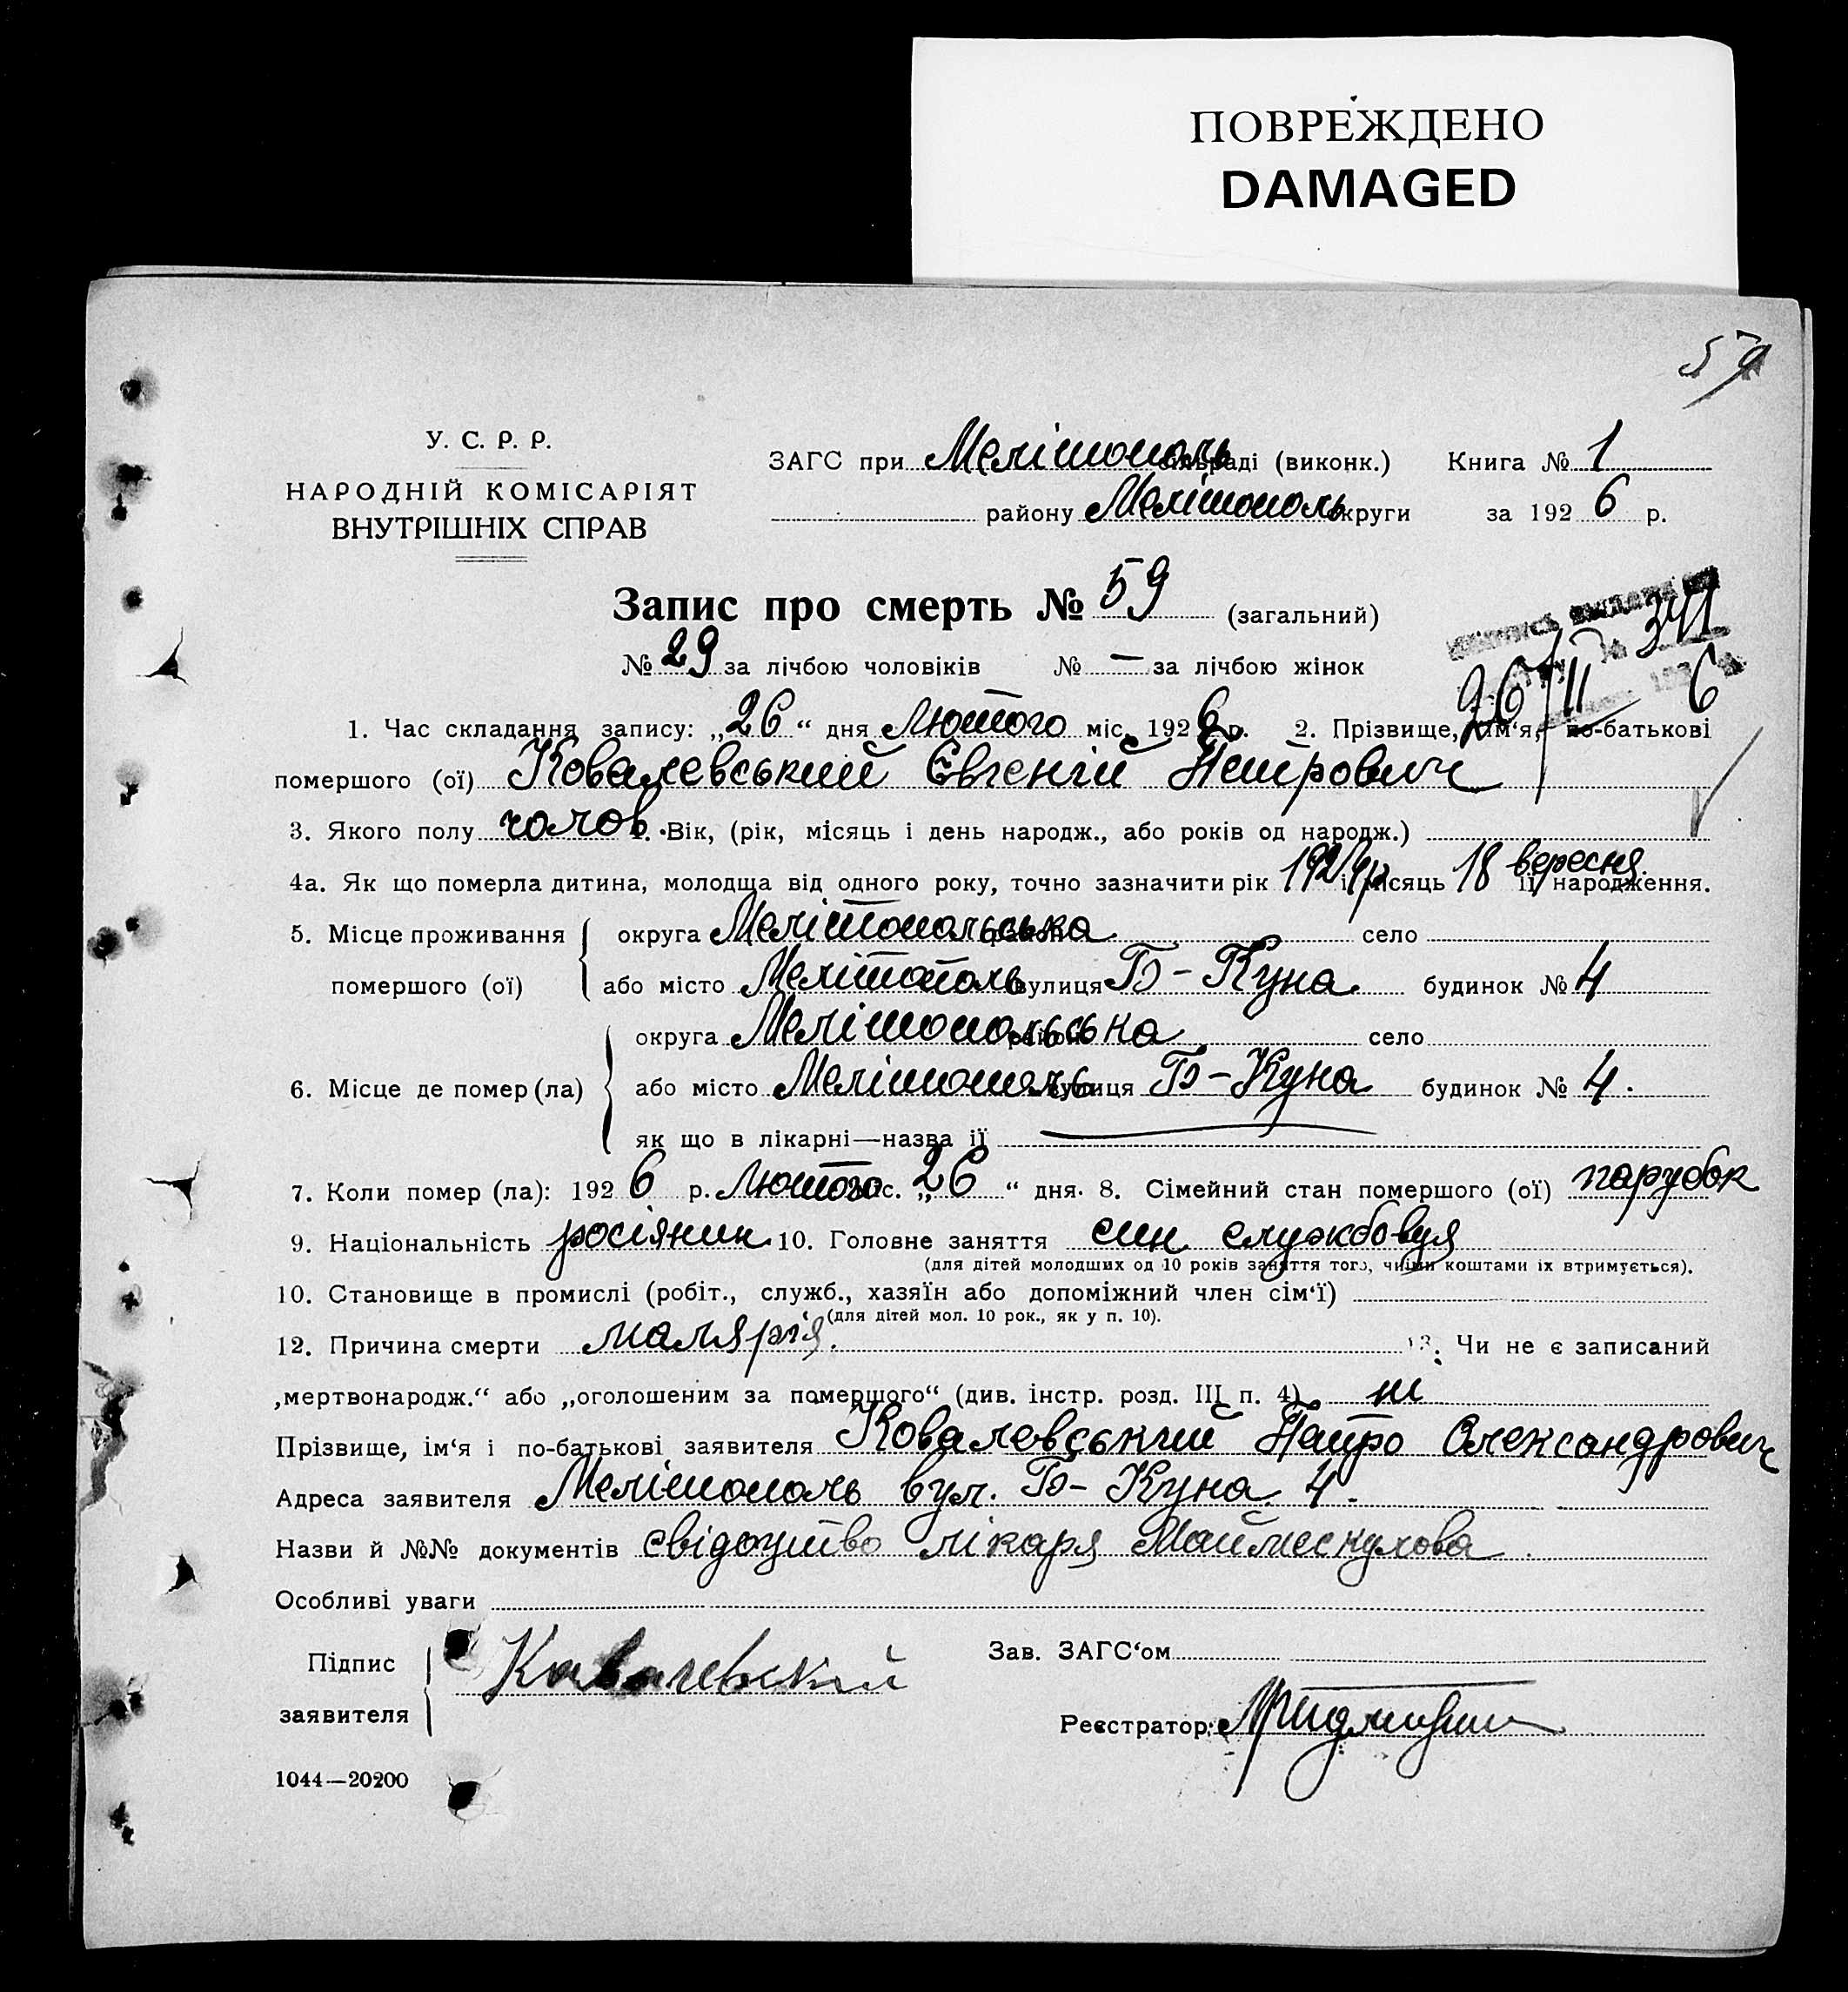 ПОВРЕЖДЕНО
DAMAGED
59
У. С. Р. Р.
НАРОДНІЙ КОМІСАРІЯТ
ВНУТРІШНІХ СПРАВ
ЗАГС при Мелітополь сільраді (виконк.) Книга № 1
району Мелітополь округи за 1926 р.
Запис про смерть № 59 (загальний)
№ 29 за лічбою чоловіків № — за лічбою жінок
341
26/II 6
1. Час складання запису: „26“ дня Лютого міс. 1926 р. 2. Прізвище, ім‘я, по-батькові
помершого (ої) Ковалевський Євгеній Петрович
3. Якого полу чолов. 4. Вік, (рік, місяць і день народж., або років од народж.)
4а. Як що померла дитина, молодша від одного року, точно зазначити рік і місяць 18 вересня її народження.
5. Місце проживання помершого (ої) округа Мелітопольська район село
або місто Мелітополь вулиця Б-Куна. будинок № 4
6. Місце де помер (ла) округа Мелітопольська район село
або місто Мелітополь вулиця Б-Куна будинок № 4.
як що в лікарні—назва її
7. Коли помер (ла): 1926 р. Лютого міс. „26“ дня. 8. Сімейний стан помершого (ої) парубок
9. Національність росіянин. 10. Головне заняття син службовця
(для дітей молодших од 10 років заняття того, чиїми коштами їх втримується).
10. Становище в промислі (робіт., служб., хазяїн або допоміжний член сім‘ї)
(для дітей мол. 10 рок., як у п. 10).
12. Причина смерти малярія. 13. Чи не є записаний
„мертвонародж.“ або „оголошеним за помершого“ (див. інстр. розд. III п. 4) ні
Прізвище, ім‘я і по-батькові заявителя Ковалевський Петро Олександрович
Адреса заявителя Мелітополь вул. Б-Куна. 4.
Назви й №№ документів свідоцтво лікаря
Особливі уваги
Підпис заявителя Ковалевский
Зав. ЗАГС‘ом
Реєстратор:
1044—20200